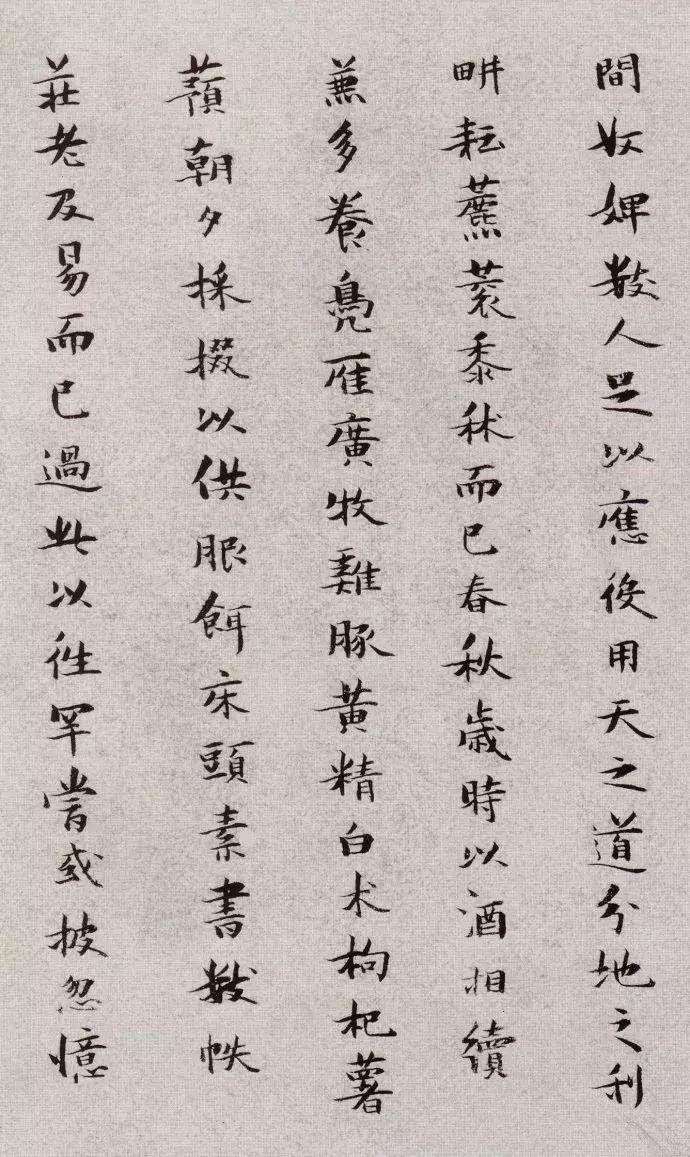 間奴婢數人足以應役用天之道分地之利
畊耘藨蓘黍秫而已春秋歲時以酒相續
兼多養鳧雁廣牧雞豚黃精白术枸杞薯
蕷朝夕採掇以供服餌床頭素書數帙
莊老及易而已過此以往罕嘗或披忽憶